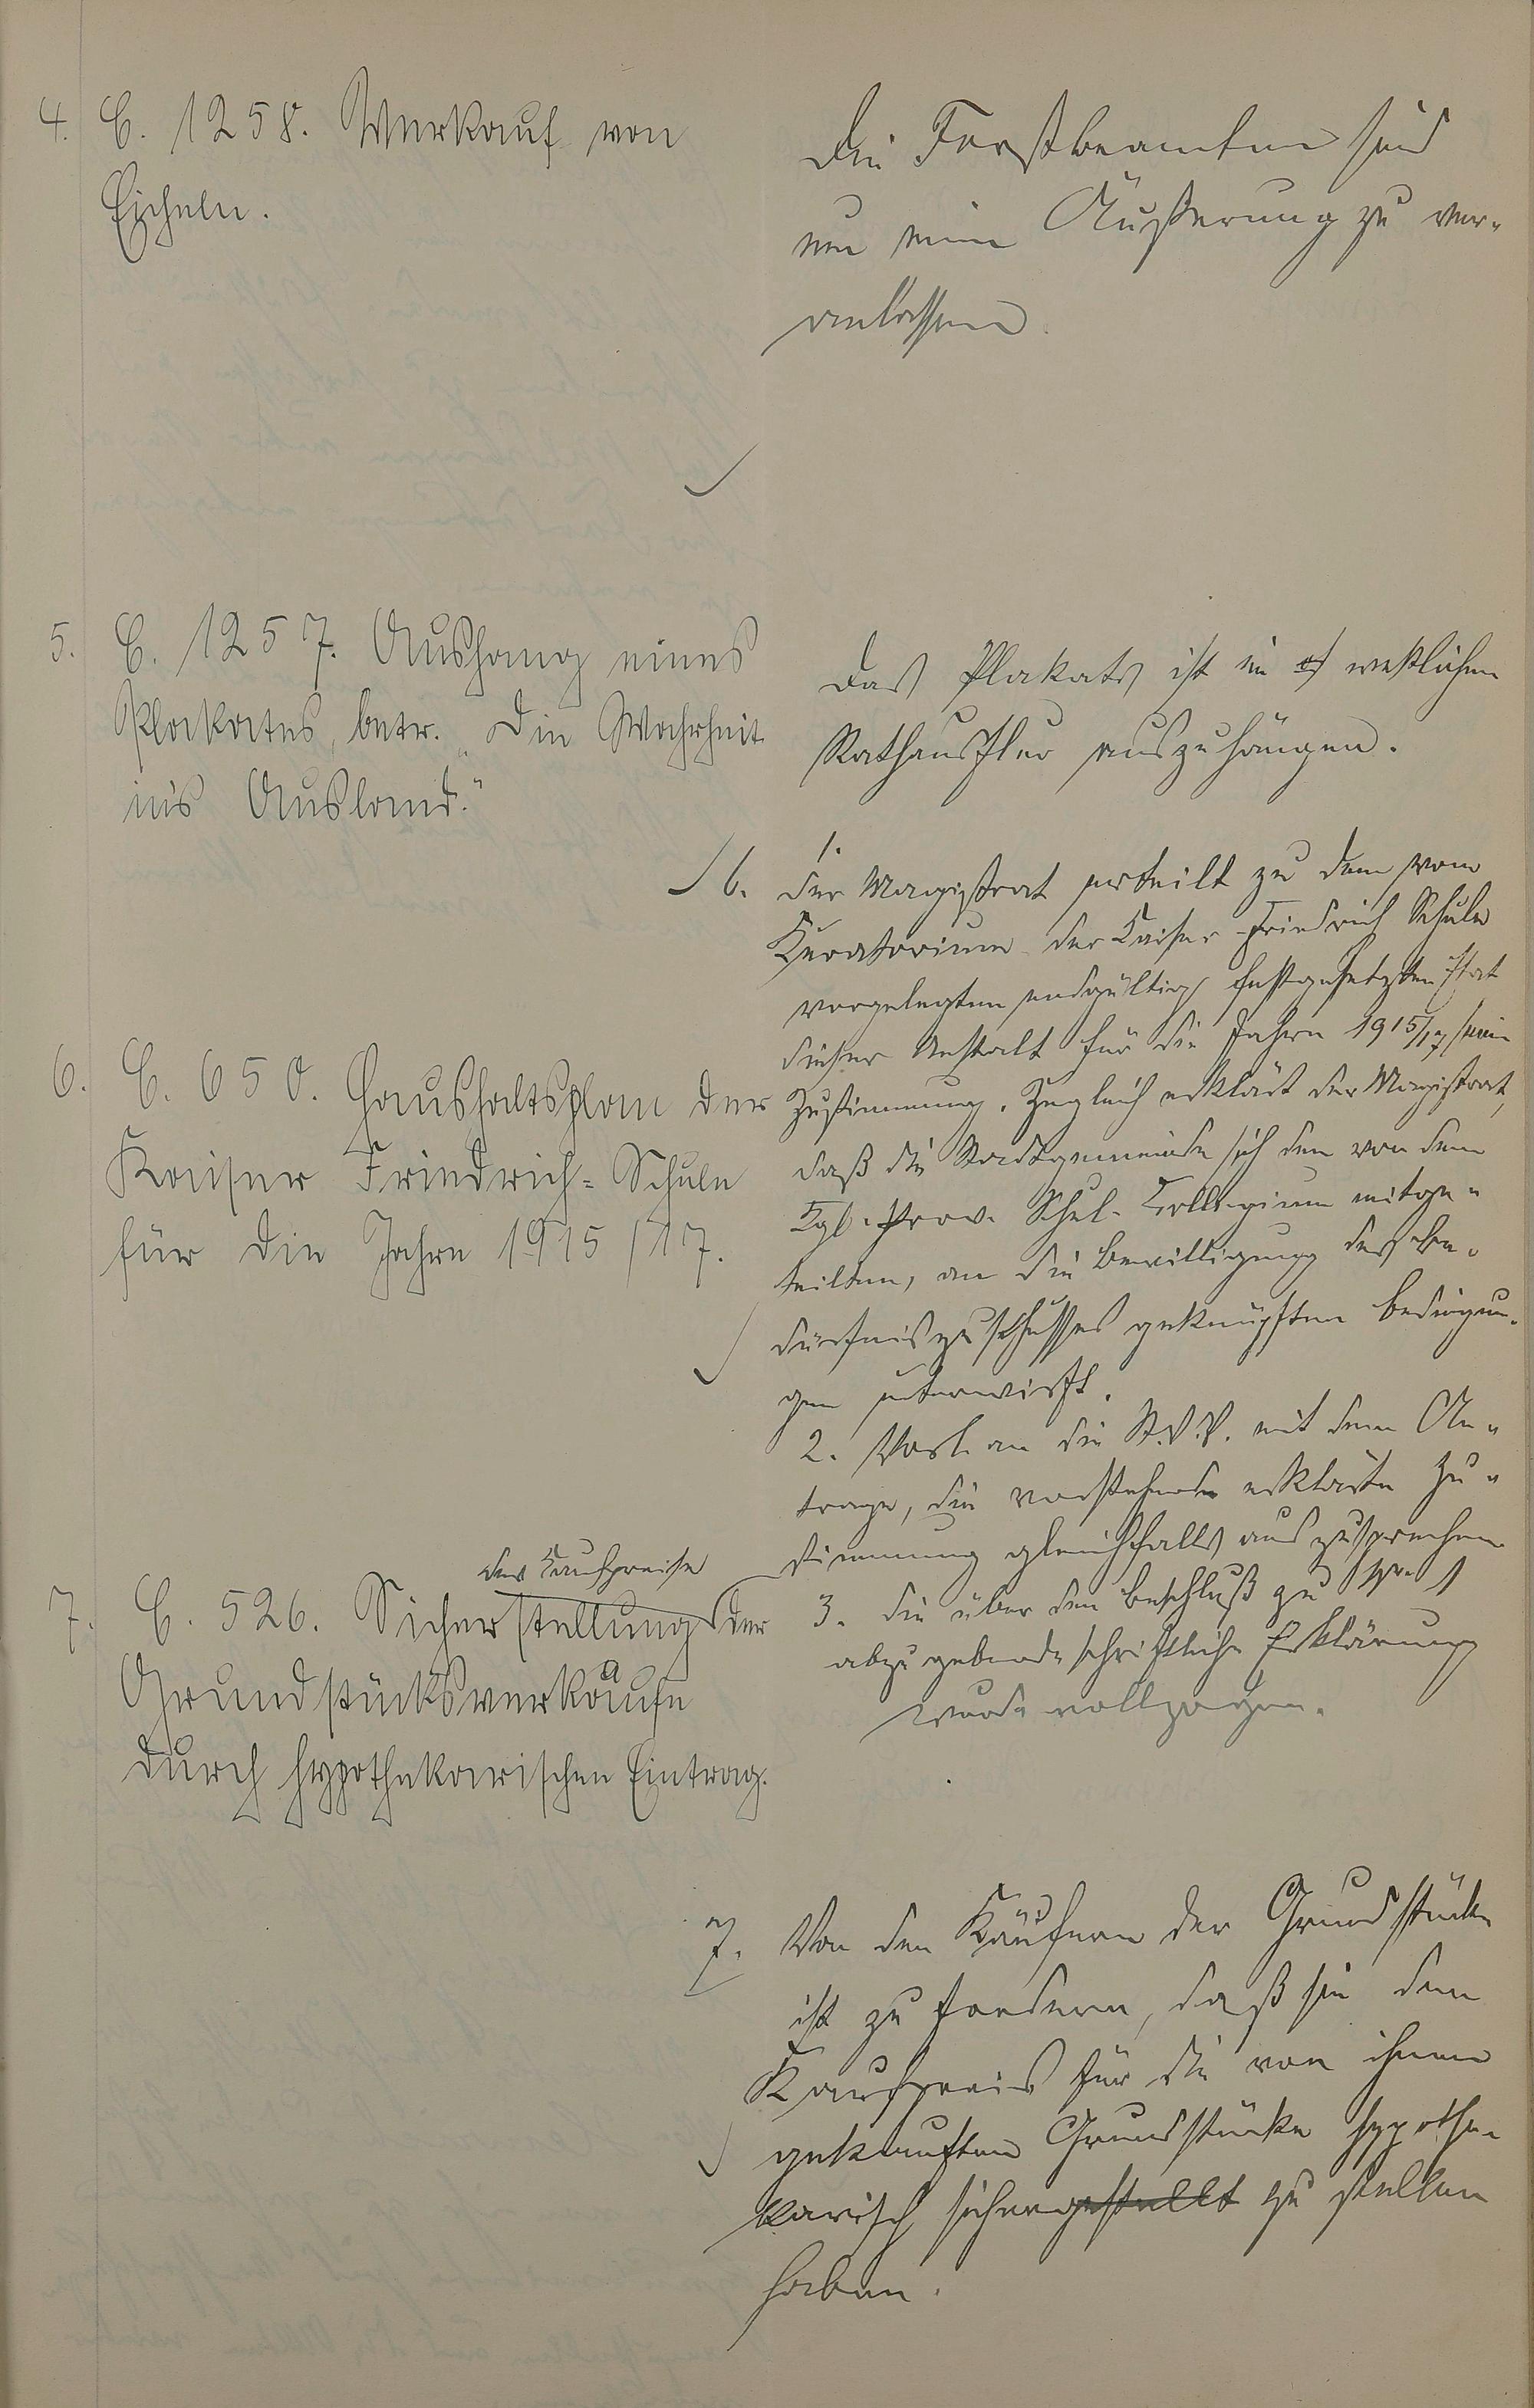 4. C. 1258. Verkauf von
Eicheln.
Die Forstbeamten sind
um eine Äußerung zu ver-
anlassen.
5. C. 1257. Aushang eines
Plakates, betr. „Die Wahrheit
ins Ausland."
Das Plakats ist im westlichen
Rathausflur auszuhängen.
6. C. 650. Haushaltsplan der
Kaiser Friedrich-Schule
für die Jahre 1915/17.
6. 1.
Der Magistrat erteilt zu dem vom
Kuratorium der Kaiser-Friedrich Schule
vorgelegten endgültig festgesetzten Etat
dieser Anstalt für die Jahre 1915/17 seine
Zustimmung. Zugleich erklärt der Magistrat,
daß die Stadtgemeinde sich den von dem
Kgl. Prov. Schul-Kollegium mitge-
teilten, an die Bewilligung des Be-
dürfniszuschusses geknüpften Bedingun-
gen unterwirft.
2. Vorl. an die St.V.V. mit dem An-
trage, die vorstehende erklärte Zu-
stimmung gleichfalls auszusprechen
3. Die über den Beschluß zu Nr. 1
abzugebende schriftliche Erklärung
wurde vollzogen.
7. C. 526. Sicherstellung der
des Kaufpreises
Grundstücksverkäufe
durch hypothekarischen Eintrag.
7. Von den Käufern der Grundstücke
ist zu fordern, daß sie den
Kaufpreis für die von ihnen
gekauften Grundstücke hypothe-
karisch sichergestellt zu stellen
haben.